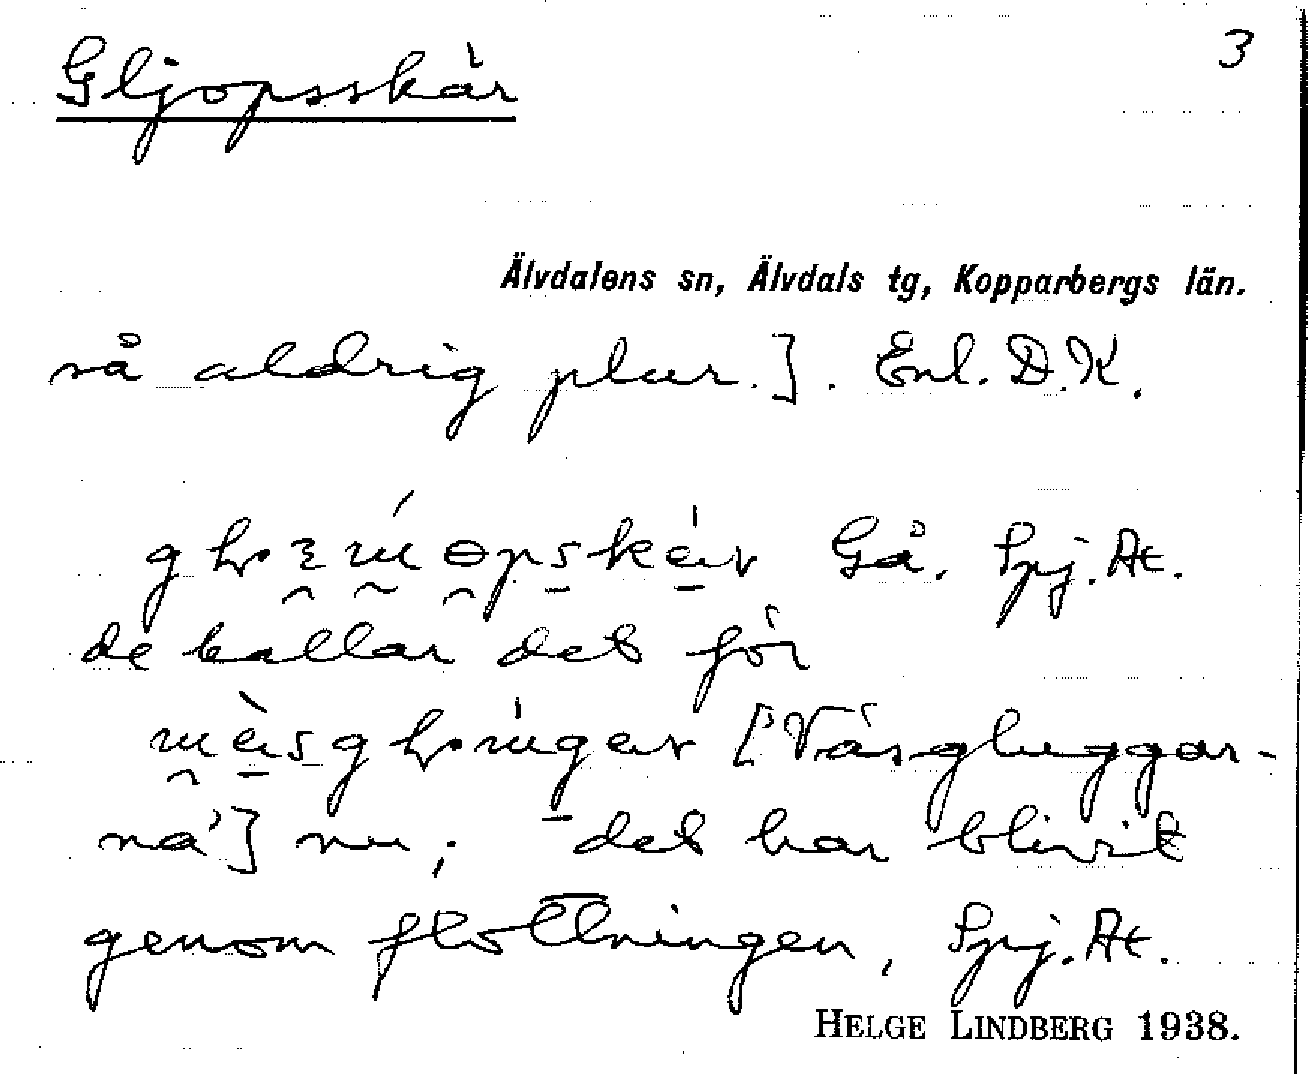 Gljopsskär
3
Älvdalens sn, Älvdals tg, Kopparbergs län.
så aldrig plur.]. Enl. D.K.
Gå. Spj. At.
de kallar det för
[‘Väsgluggar-
na’] nu; det har blivit
genom flottningen, Spj. At.
HELGE LINDBERG 1938.